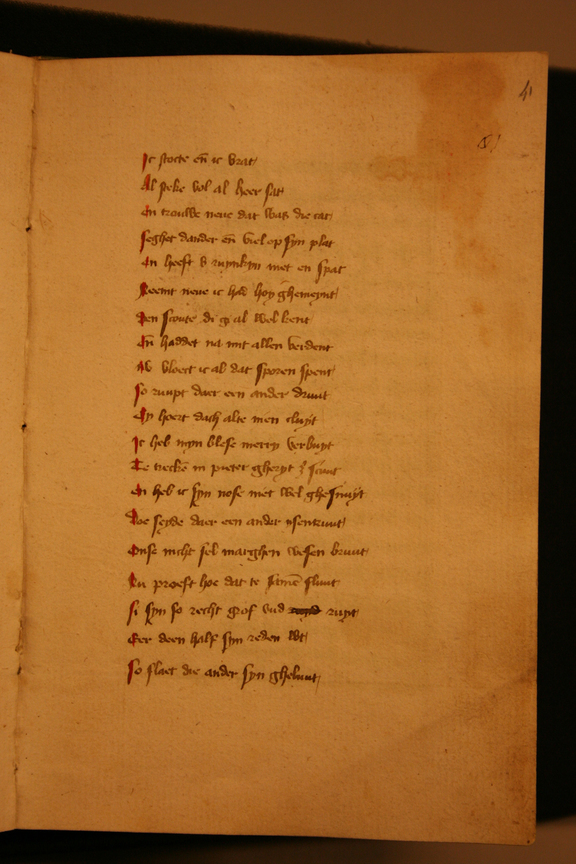 41
Ic stocte en̄ ic vrat
Al steke vol al heer sat
En trouwe neue dat was die cat
Seghet dander en̄ viel op syn plat
En heeft met en spat
Neemt neue ic had hoy ghemeynt
Den scoute di al wel kent
En̄ haddet na mit allen verdent
Nv vloect ic al dat sporen spent
So ruupt daer een ander druut
Gy hoert dach alte men cluyt
Ic heb myn blese merry verbuyt
Te trecke in pieter gheryt
En heb ic syn nose met wel ghesnuyt
Doe seyde daer een ander
Onse nicht sel marghen wesen bruut
Nu proeft hoe dat te sluut
Si syn so recht grof vud ruyt
Eer deen half syn reden wt
So slaet die ander syn gheluut